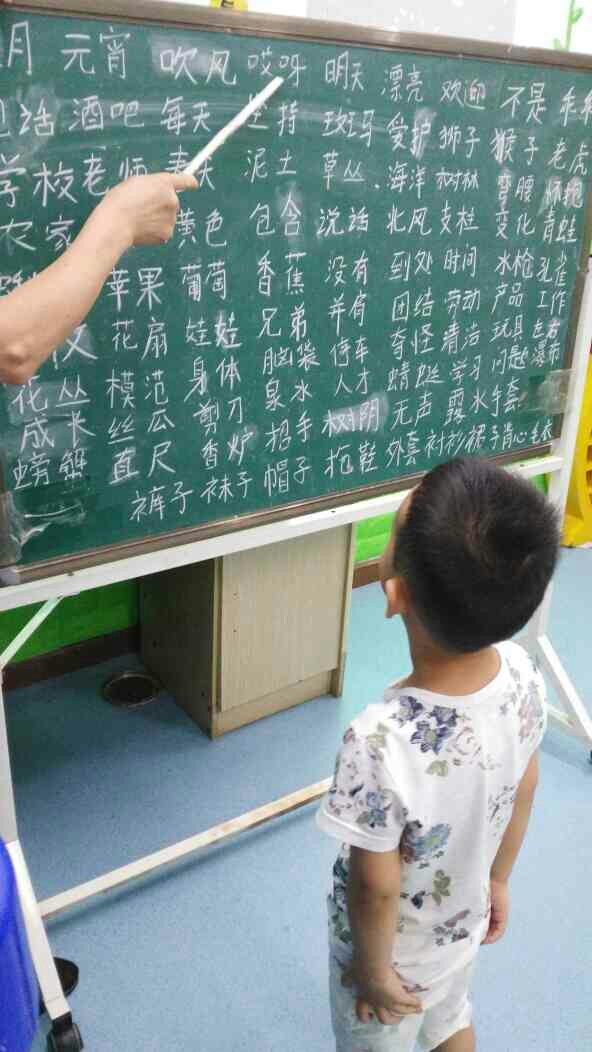 月 元宵 吹风 哎呀 明天 漂亮 欢迎 不是 乖乖
电话 酒吧 每天 坚持 斑马 爱护 狮子 猴子 老虎
学校 老师 春天 泥土 草丛 海洋 树林 弯腰 怀抱
农家 黄色 包含 说话 北风 支柱 变化 青蛙
苹果 葡萄 香蕉 没有 到处 时间 水枪 孔雀
花扇 娃娃 兄弟 并肩 团结 劳动 产品 工作
花丛 模范 身体 脑袋 停车 奇怪 清洁 玩具 左右
成长 丝瓜 剪刀 泉水 人才 蜻蜓 学习 问题 瀑布
螃蟹 直尺 香炉 招手 树阴 无声 露水 手套
裤子 袜子 帽子 拖鞋 外套 衬衫 裙子 背心 毛衣